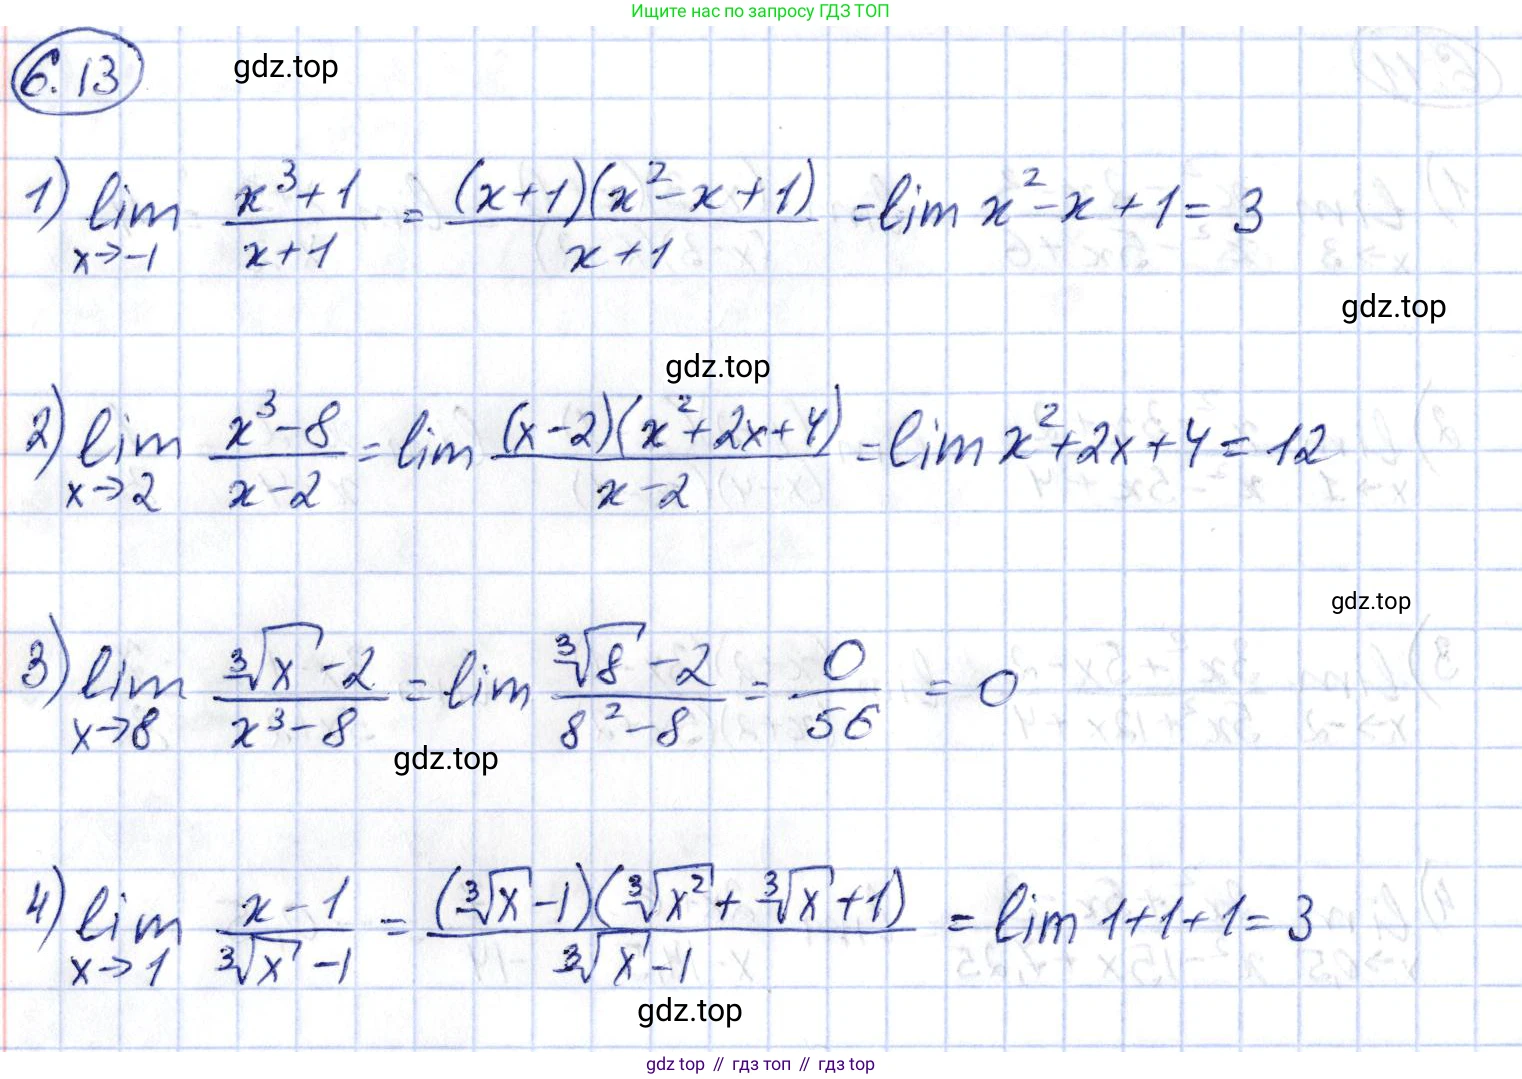 Ищите нас по запросу ГДЗ ТОП
6.13
gdz.top
1) lim x→-1 (x³+1)/(x+1) = ((x+1)(x²-x+1))/(x+1) = lim x²-x+1 = 3
gdz.top
gdz.top
2) lim x→2 (x³-8)/(x-2) = lim ((x-2)(x²+2x+4))/(x-2) = lim x²+2x+4 = 12
gdz.top
3) lim x→8 (∛x-2)/(x³-8) = lim (∛8-2)/(8²-8) = 0/56 = 0
gdz.top
4) lim x→1 (x-1)/(∛x-1) = ((∛x-1)(∛x²+∛x+1))/(∛x-1) = lim 1+1+1 = 3
gdz.top
gdz top // гдз топ // гдз top